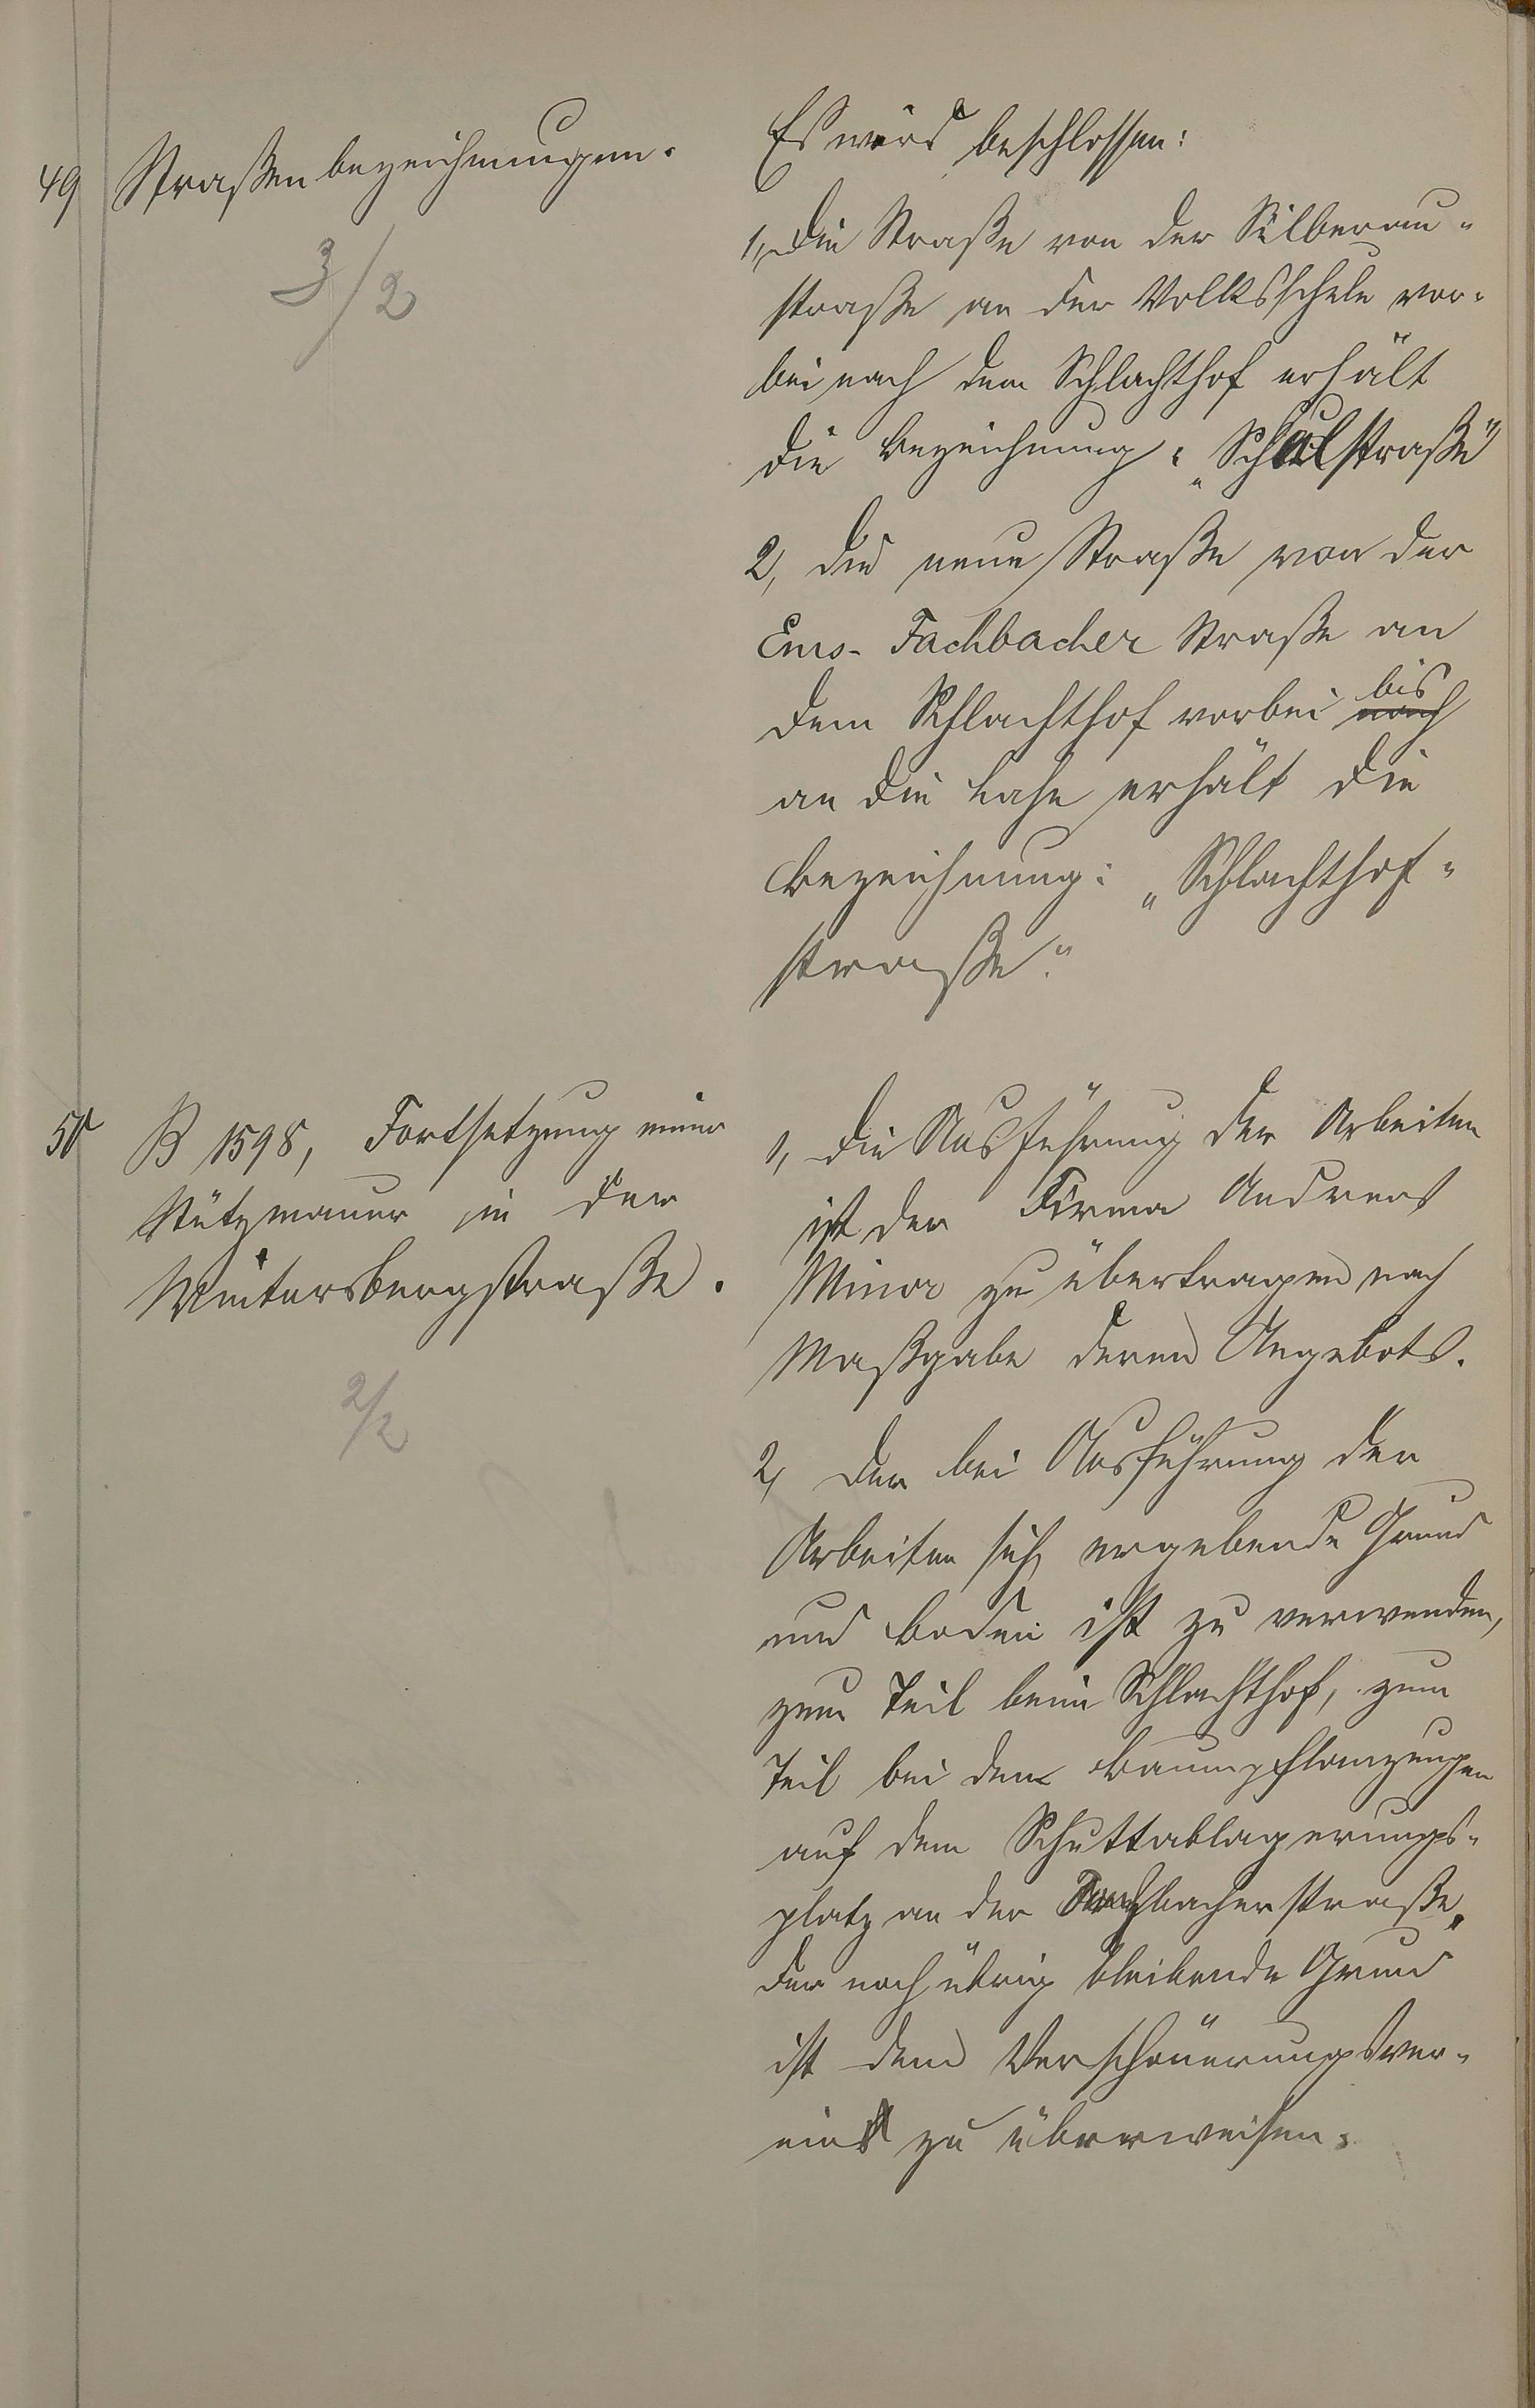 49 Straßenbezeichnungen.
3/2
Es wird beschlossen:
1, Die Straße von der Silberau-
straße an der Volksschule vor-
bei nach dem Schlachthof erhält
die Bezeichnung: „Schulstraße"
2, die neue Straße von der
Ems-Fachbacher Straße an
dem Schlachthof vorbei nach bis
an die Lahn erhält die
Bezeichnung: „Schlachthof-
straße."
50 B 1598, Fortsetzung einer
Stützmauer in der
Wintersbergstraße.
2/2
1, die Ausführung der Arbeiten
ist der Firma Andreas
Minor zu übertragen nach
Maßgabe deren Angebots.
2, der bei Ausführung der
Arbeiten sich ergebende Grund
und Boden ist zu verwenden,
zum Teil beim Schlachthof, zum
Teil bei den Baumpflanzungen
auf dem Schuttablagerungs-
platz an der Fachbacherstraße,
der noch übrig bleibende Grund
ist dem Verschönerungsver-
ein zu überweisen.